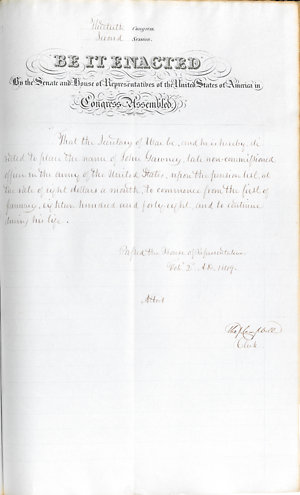 Thirtieth Congress
Second Session
BE IT ENACTED
By the Senate and House of Representatives of the United States of America in
Congress Assembled,
That the Secretary of War be, and is hereby, di-
rected to place the name of John Gawney, late non-commissioned
officer in the army of the United States, upon the pension list, at
the rate of eight dollars a month, to commence from the first of
January, eighteen hundred and forty eight, and to continue
during his life.
Passed the House of Representatives
Feb. 2d A.D. 1849.
Attest
Tho. J. Campbell
Clerk